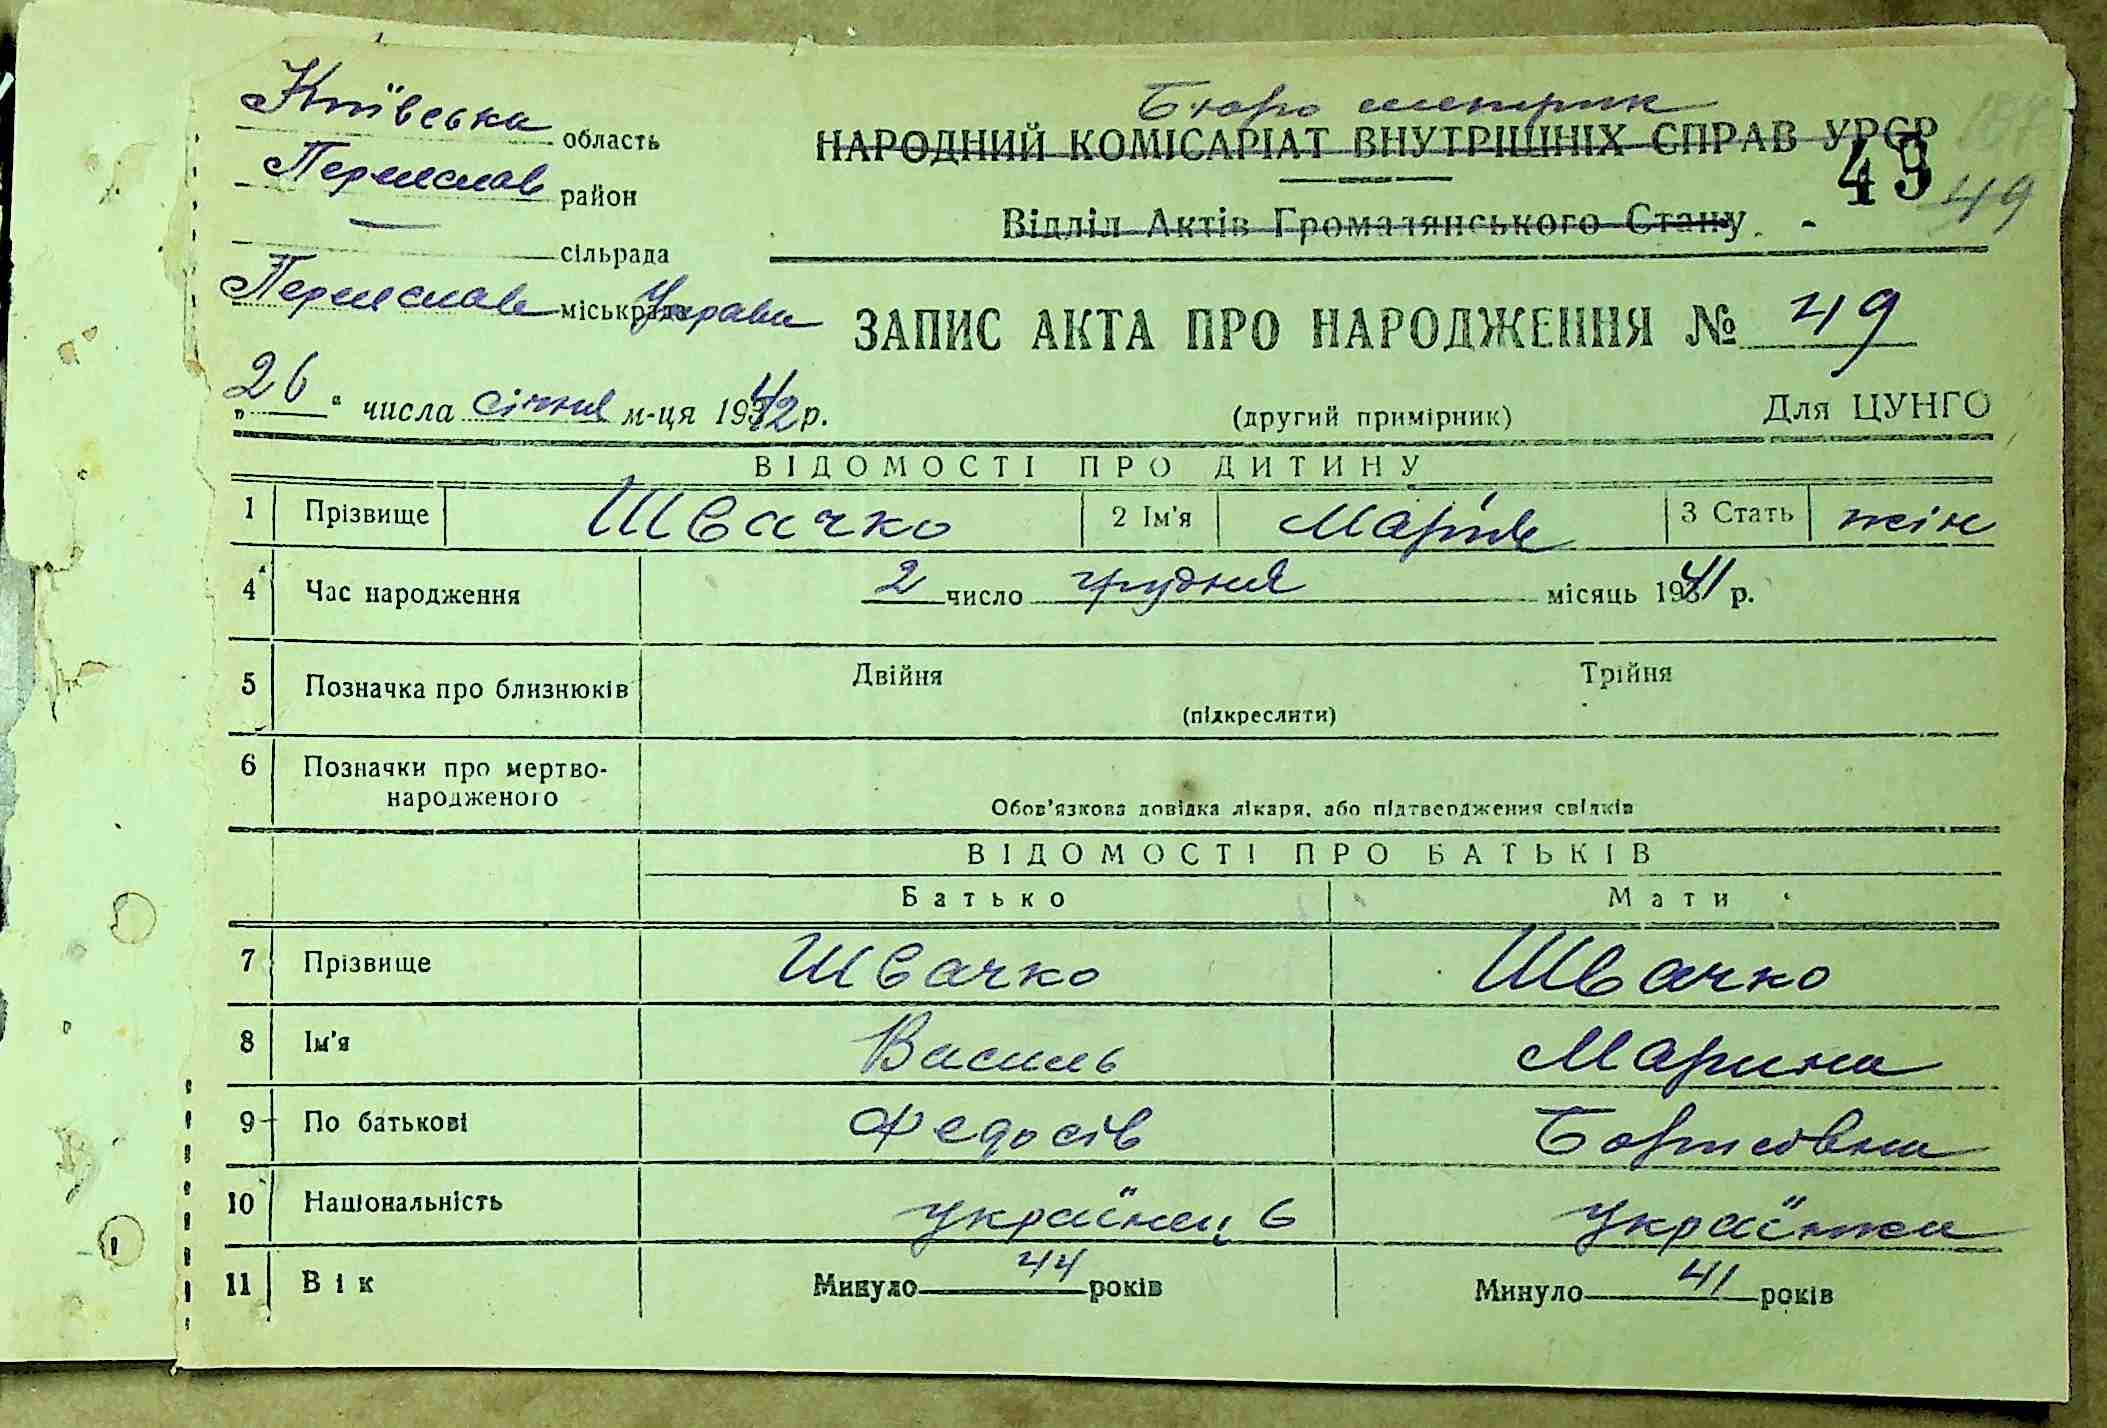 Київська область
Переяслав район
— сільрада
Переяслав міськрада Управи
Бюро метрик
НАРОДНИЙ КОМІСАРІАТ ВНУТРІШНІХ СПРАВ УРСР
49
49
Відділ Актів Громадянського Стану
ЗАПИС АКТА ПРО НАРОДЖЕННЯ № 49
„26“ числа січня м-ця 1942 р.
(другий примірник)
Для ЦУНГО
ВІДОМОСТІ ПРО ДИТИНУ
1 Прізвище Швачко 2 Ім'я Марія 3 Стать жін
4 Час народження 2 число грудня місяць 1941 р.
5 Позначка про близнюків Двійня Трійня
(підкреслити)
6 Позначки про мертво-
народженого
Обов'язкова довідка лікаря, або підтвердження свідків
ВІДОМОСТІ ПРО БАТЬКІВ
Батько Мати
7 Прізвище Швачко Швачко
8 Ім'я Василь Марина
9 По батькові Федосів Борисовна
10 Національність українець українка
11 Вік Минуло 44 років Минуло 41 років